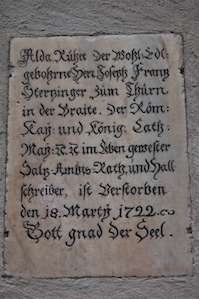 Alda Ruhet der Wohl Edl:
gebohrne Herr Joseph Frantz
Stertzinger zum Thurn
in der Braite. der Röm:
Kaÿ: und König: Cath:
Maÿ: im leben gewester
Saltz-Ambts-Rath, und Hall
schreiber, ist Verstorben
den 18. Martÿ 1722.
Gott gnad der Seel.